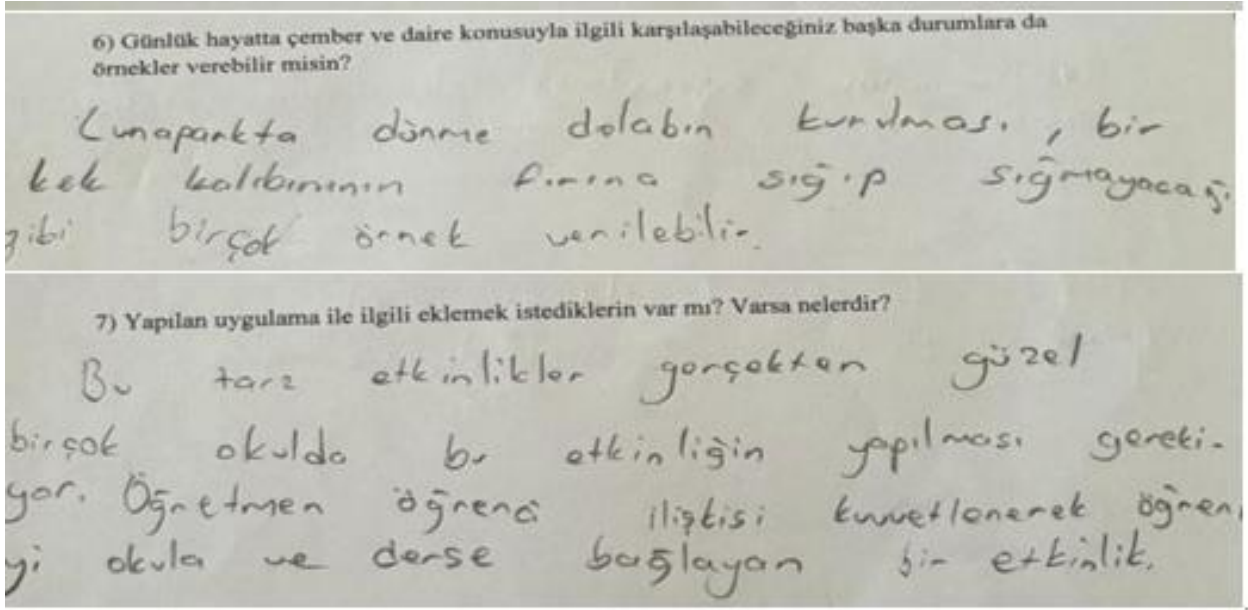 6) Günlük hayatta çember ve daire konusuyla ilgili karşılaşabileceğiniz başka durumlara da
örnekler verebilir misin?
Lunaparkta dönme dolabın kurulması, bir
kek kalıbınının fırına sığıp sığmayacağı
gibi birçok örnek verilebilir.
7) Yapılan uygulama ile ilgili eklemek istediklerin var mı? Varsa nelerdir?
Bu tarz etkinlikler gerçekten güzel
birçok okulda bu etkinliğin yapılması gereki-
yor. Öğretmen öğrenci ilişkisi kuvvetlenerek öğren
yi okula ve derse bağlayan bir etkinlik.